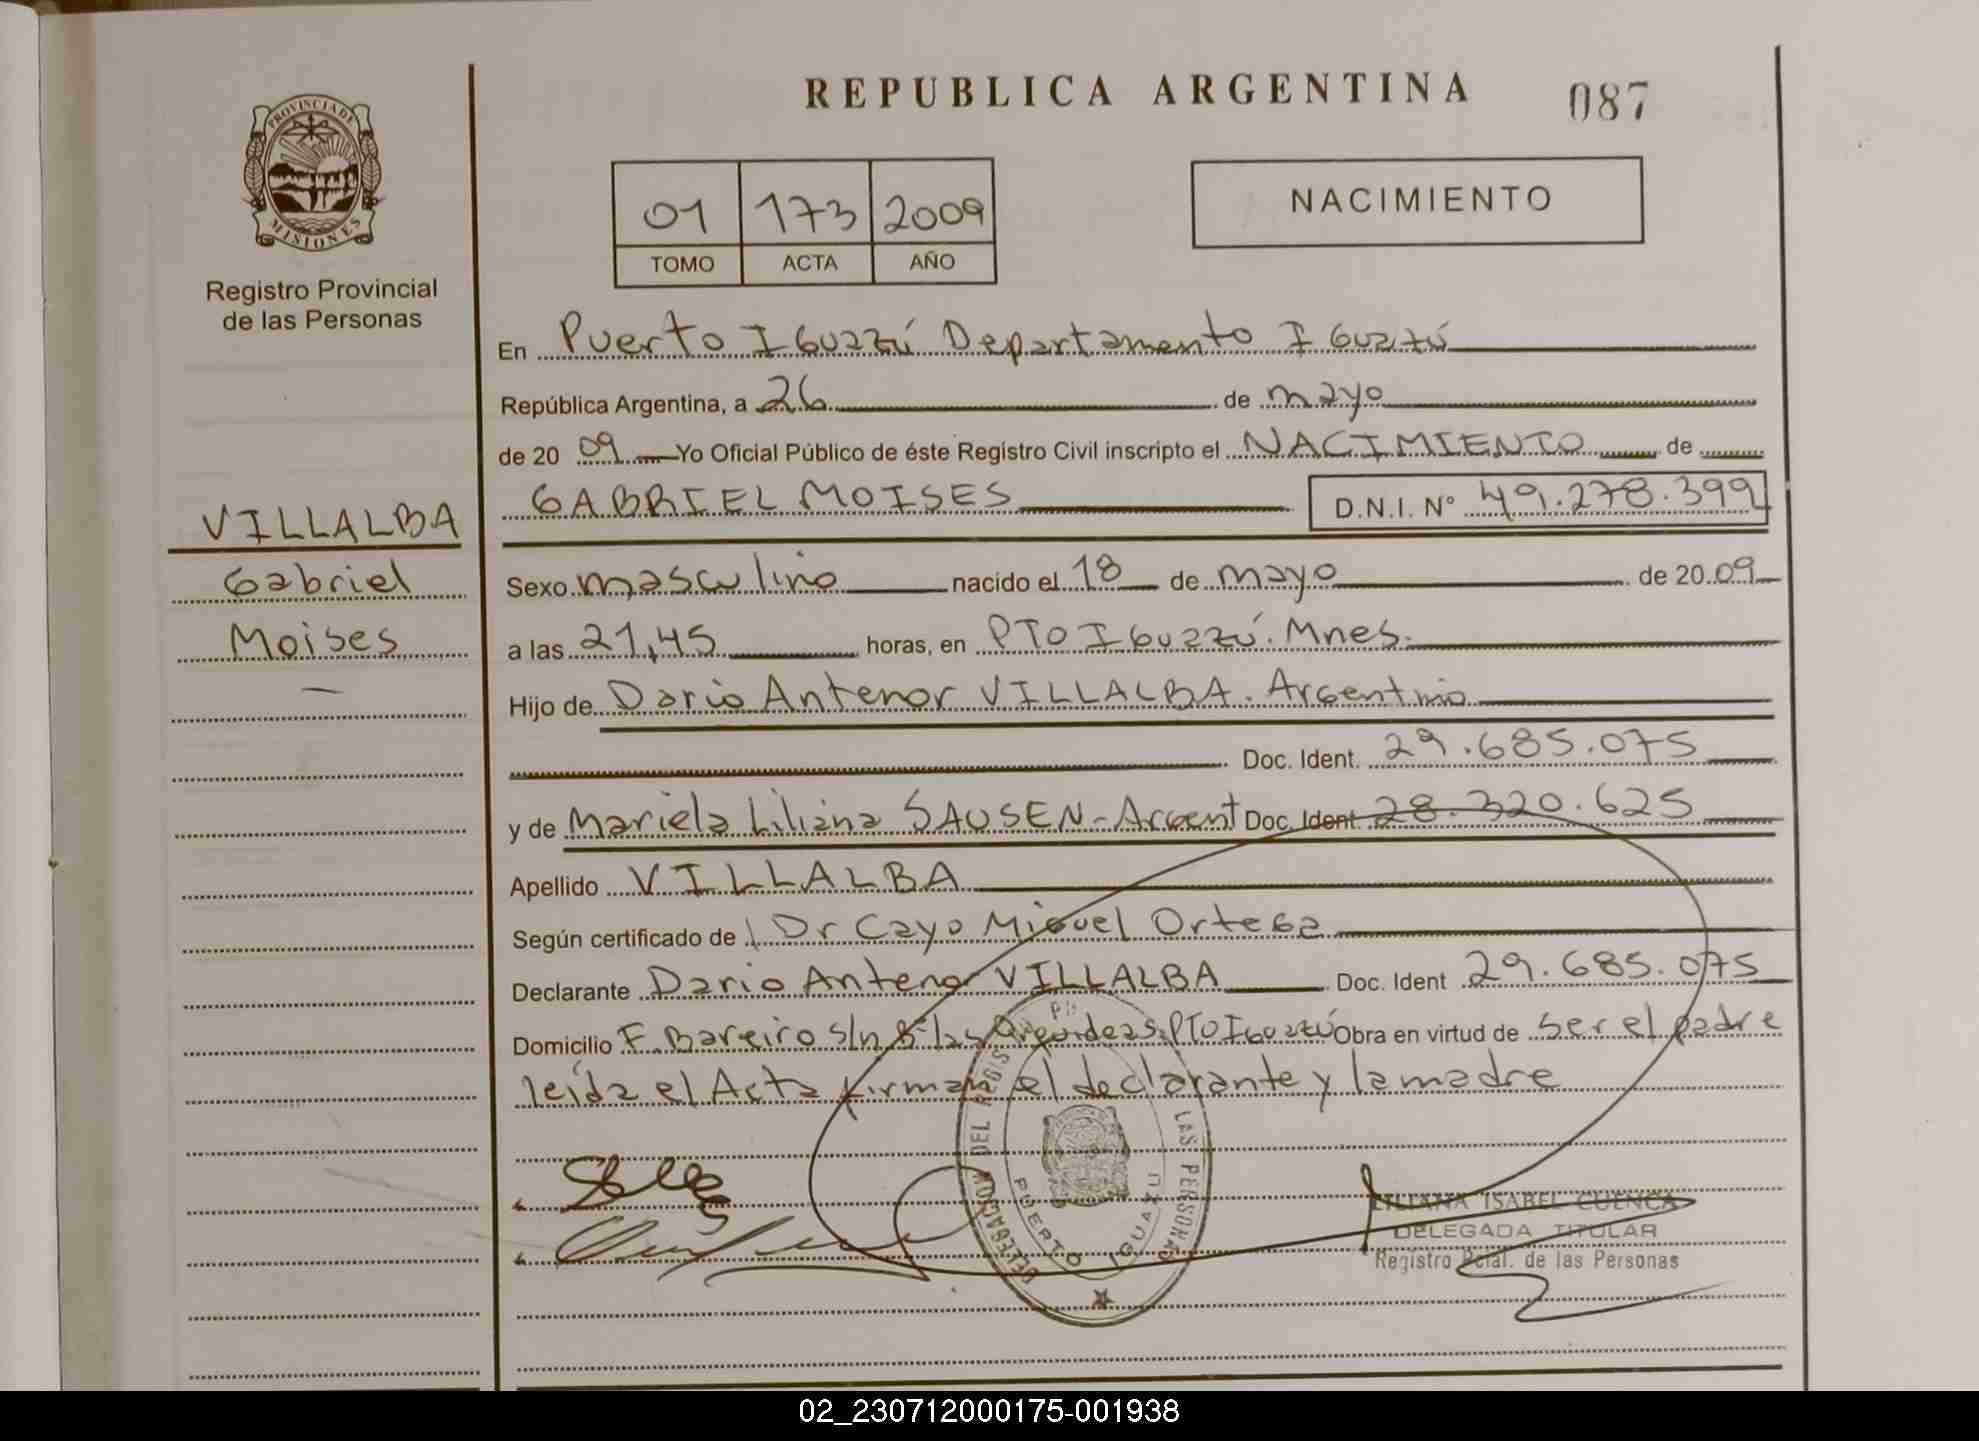 REPUBLICA ARGENTINA
087
PROVINCIA DE
MISIONES
Registro Provincial
de las Personas
01 173 2009
TOMO ACTA AÑO
NACIMIENTO
En Puerto Iguazú Departamento Iguazú
República Argentina, a 26 de mayo
de 20 09 Yo Oficial Público de éste Registro Civil inscripto el NACIMIENTO de
GABRIEL MOISES D.N.I. N° 49.278.399
VILLALBA
Gabriel
Moises
Sexo masculino nacido el 18 de mayo de 20 09
a las 21,45 horas, en PTO Iguazú. Mnes.
Hijo de Dario Antenor VILLALBA. Argentino
Doc. Ident. 29.685.075
y de Mariela Liliana SAUSEN - Argent Doc. Ident. 28.320.625
Apellido VILLALBA
Según certificado de Dr Cayo Miguel Ortega
Declarante Dario Antenor VILLALBA Doc. Ident 29.685.075
Domicilio F. Bareiro s/n B° las Orquideas. PTO Iguazú Obra en virtud de ser el padre
leída el Acta firman el declarante y la madre
DELEGACION DEL REGISTRO LAS PERSONAS
PUERTO IGUAZU
LILIANA ISABEL CUENCA
DELEGADA TITULAR
Registro Pcial. de las Personas
02_230712000175-001938